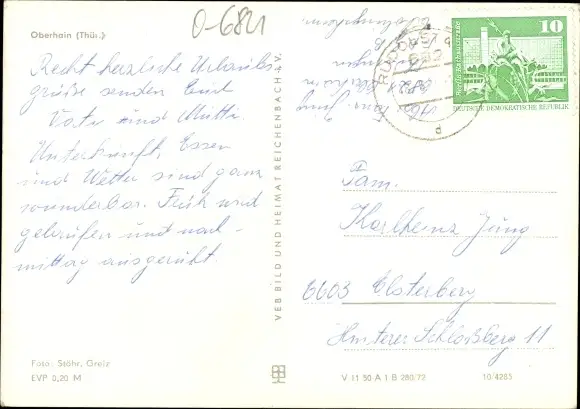 O-6821
Oberhain (Thür.)
Recht herzliche Urlaubs-
grüße senden Euch
Vati und Mutti.
Unterkunft, Essen
und Wetter sind ganz
wunderbar. Früh wird
gelaufen und nach-
mittag ausgeruht.
Foto: Stöhr, Greiz
EVP 0,20 M
VEB BILD UND HEIMAT REICHENBACH i. V.
10
DEUTSCHE DEMOKRATISCHE REPUBLIK
Fam.
Karlheinz Jung
6603 Elsterberg
Hinterer Schloßberg 11
V 11 50 A 1 B 280/72
10/4285